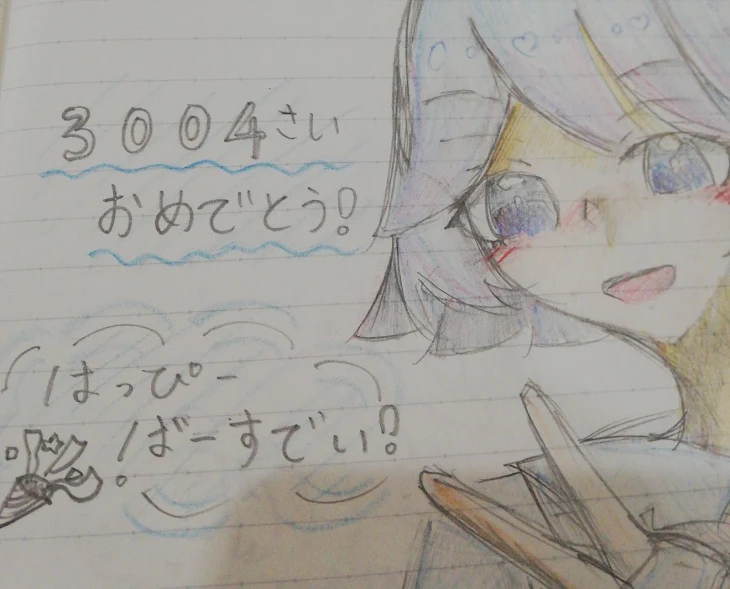 3004さい
おめでとう!
はっぴー
ばーすでい!